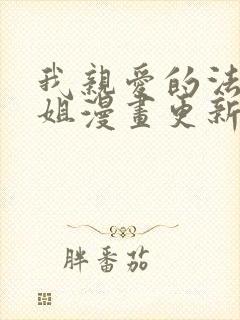 我親愛的法
姐漫畫更新
胖番茄